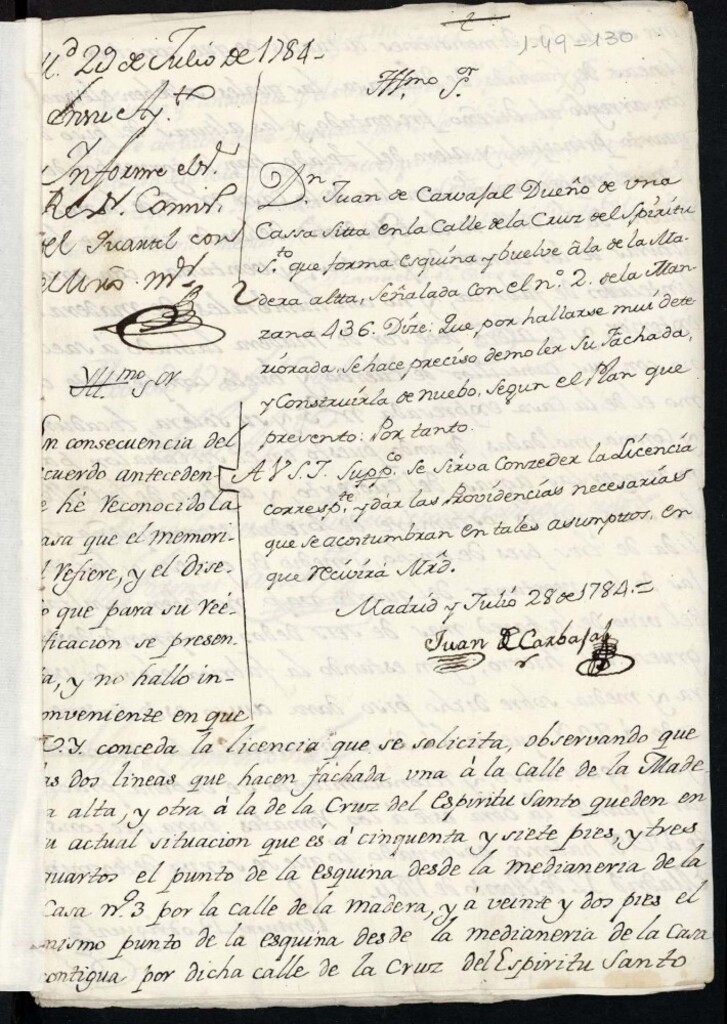 1-49-130
M.d 29 de Julio de 1784.
En su Ay.to
Informe el S.r
Rex.r Comis.
del Quartel con
el Mro. m.or
Yll.mo S.or
En consecuencia del
acuerdo anteceden-
te hé reconocido la
casa que el memori-
al refiere, y el dise-
ño que para su reé-
dificacion se presen-
ta, y no hallo in-
conveniente en que
Yll.mo S.or
D.n Juan de Carvajal Dueño de vna
Cassa sitta en la Calle de la Cruz del Spiritu
S.to que forma esquina y buelve â la de la Ma-
dera altta, señalada con el n.o 2. de la Man-
zana 436. Dize: Que por hallarse mui dete-
riorada, se hace preciso demoler su Fachada,
y Construirla de nuebo, segun el Plan que
presento: Por tanto.
A V S. I. Supp.co se sirva Conzeder la Licencia
corresp.te y dár las Providencias necesarias
que se acostumbran en tales asumpttos, en
que recivirá Mrd.
Madrid y Julio 28 de 1784.=
Juan de Carbajal
V.Y. conceda la licencia que se solicita, observando que
las dos lineas que hacen fachada vna á la Calle de la Made-
ra alta, y otra á la de la Cruz del Espiritu Santo queden en
su actual situacion que és á cinquenta y siete pies, y tres
quartos el punto de la esquina desde la medianeria de la
Casa n.o 3 por la calle de la madera, y á veinte y dos pies el
mismo punto de la esquina desde la medianeria de la Casa
contigua por dicha calle de la Cruz del Espiritu Santo